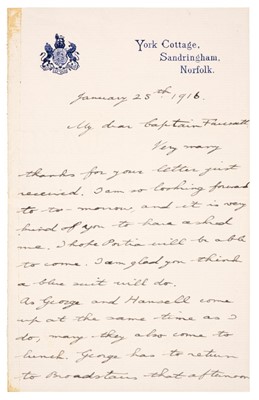 York Cottage,
Sandringham,
Norfolk.
January 25th 1916.
My dear Captain Faucett
Very many
thanks for your letter just
received. I am so looking forward
to to-morrow, and it is very
kind of you to have asked
me. I hope Portia will be able
to come. I am glad you think
a blue suit will do.
As George and Hansell come
up at the same time as I
do, may they also come to
lunch. George has to return
to Broadstairs that afternoon